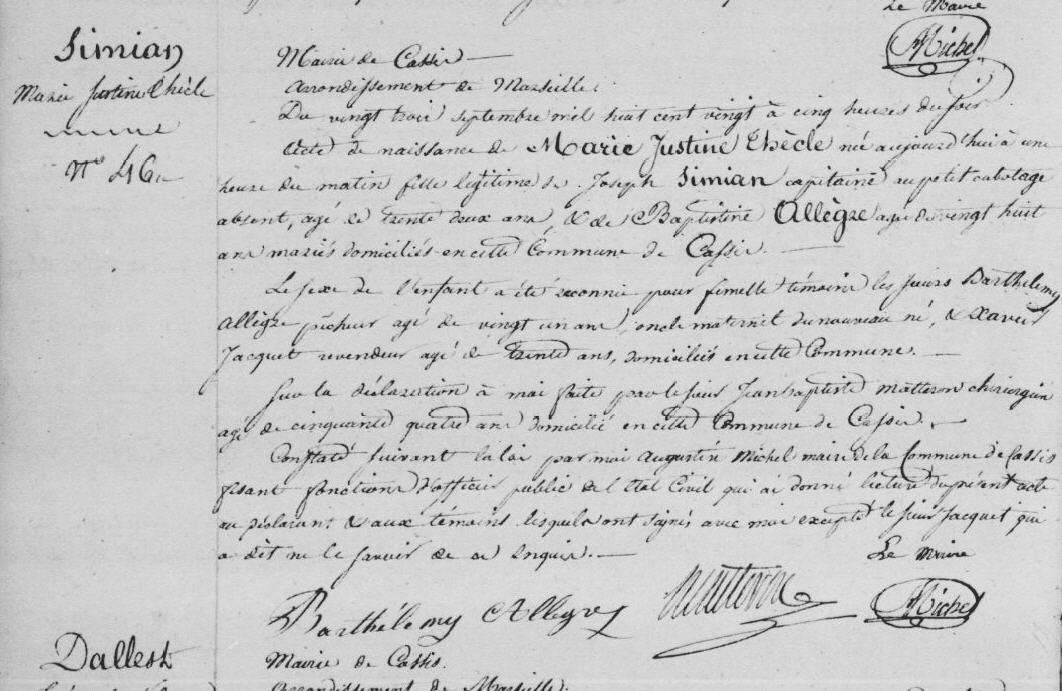 Le Maire
Michel
Simian
Marie Justine Thècle
N° 46
Mairie de Cassis
arrondissement de Marseille.
Du vingt trois septembre mil huit cent vingt à cinq heures du soir
Acte de naissance de Marie Justine Thècle née aujourd'hui à une
heure du matin fille legitime de Joseph Simian capitaine au petit cabotage
absent, agé de trente deux ans, & de Baptistine Allègre agée de vingt huit
ans mariés domiciliés en cette Commune de Cassis.
Le sexe de l'enfant a été reconnu pour femelle témoins les sieurs Barthelemy
Allègre pêcheur agé de vingt un ans, oncle maternel du nouveau né, & Xavier
Jacquet revendeur agé de trente ans, domiciliés en cette Commune.
Sur la déclaration à moi faite par le sieur Jean baptiste Matteron chirurgien
agé de cinquante quatre ans domicilié en cette Commune de Cassis.
Constaté suivant la loi par moi Augustin Michel maire de la Commune de Cassis
fesant fonctions d'officier public de l'Etat Civil qui ai donné lecture du présent acte
au déclarant & aux témoins lesquels ont signés avec moi excepté le sieur Jacquet qui
a dit ne le savoir de ce enquis.
Le Maire
Barthélemy Allegre Matteron Michel
Dallest
Mairie de Cassis.
Arrondissement de Marseille.